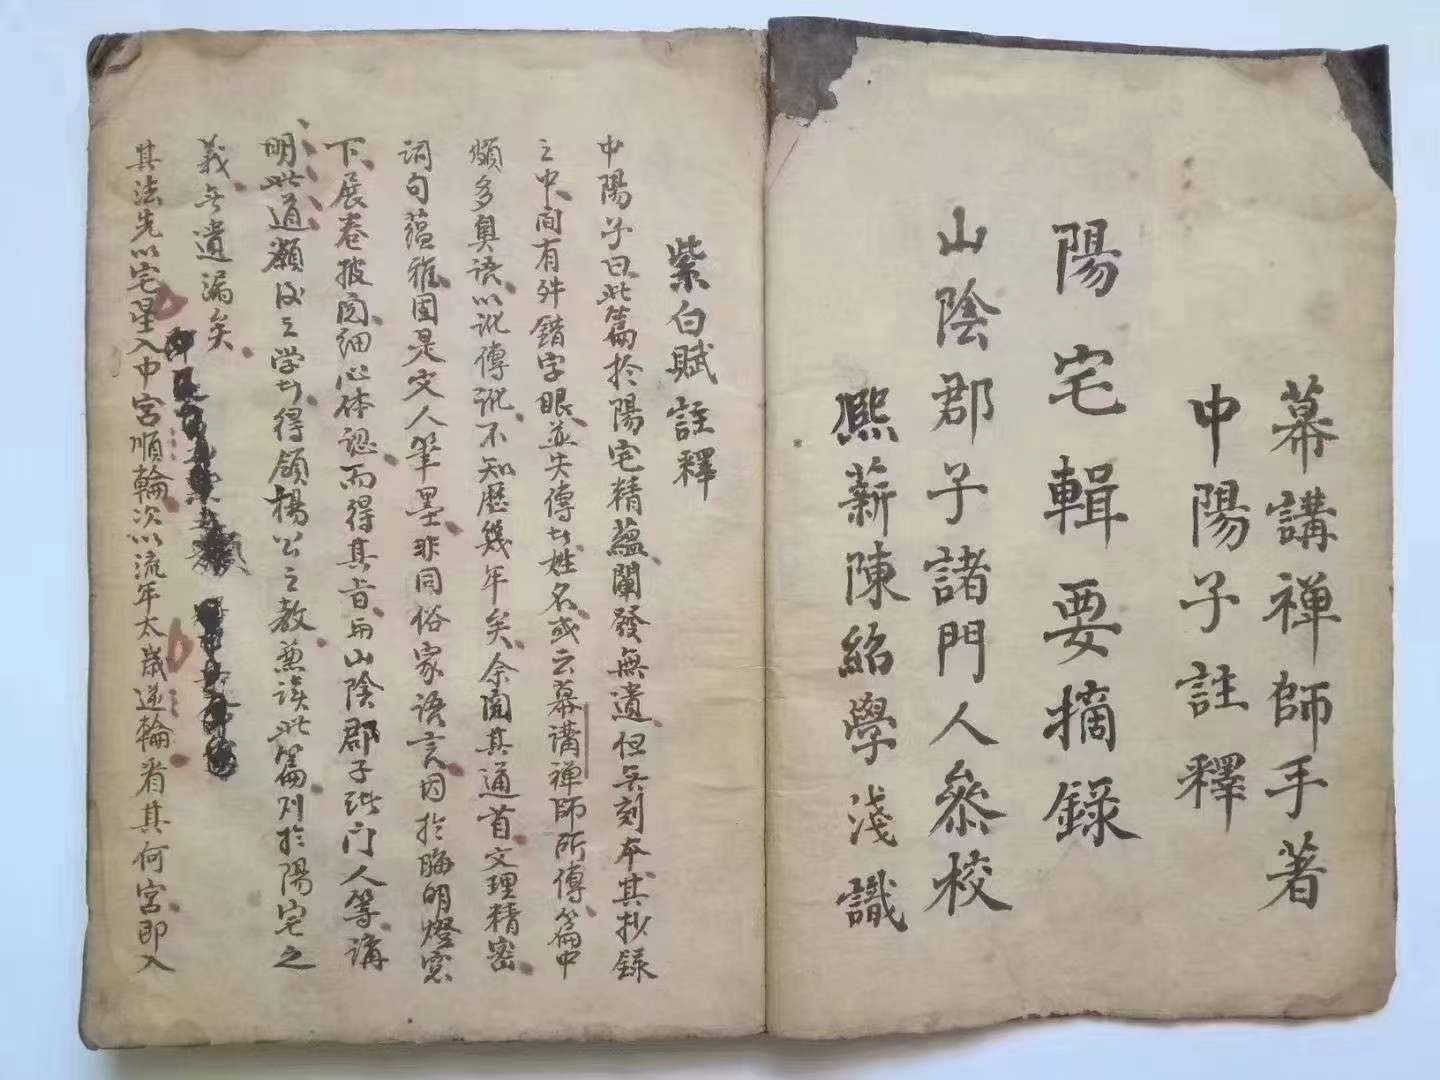 幕講禪師手著
中陽子註釋
陽宅輯要摘錄
山陰郡子諸門人叅校
熙薪陳紹學淺識
紫白賦註釋
中陽子曰此篇於陽宅精蘊闡發無遺但無刻本其抄錄
之中间有舛錯字眼並失傳者姓名或云幕講禅師所傳篇中
頗多奥语以訛傳訛不知歷幾年矣余閲其通首文理精密
词句蕴雅固是文人筆墨非同俗家语言因於晦明燈窓
下展卷披図细心体認而得其旨与山陰郡子诸门人等講
明此道願後之学者得領楊公之教兼读此篇则於陽宅之
義無遺漏矣
其法先以宅星入中宮順輪次以流年太歲逓輪看其何宮即入